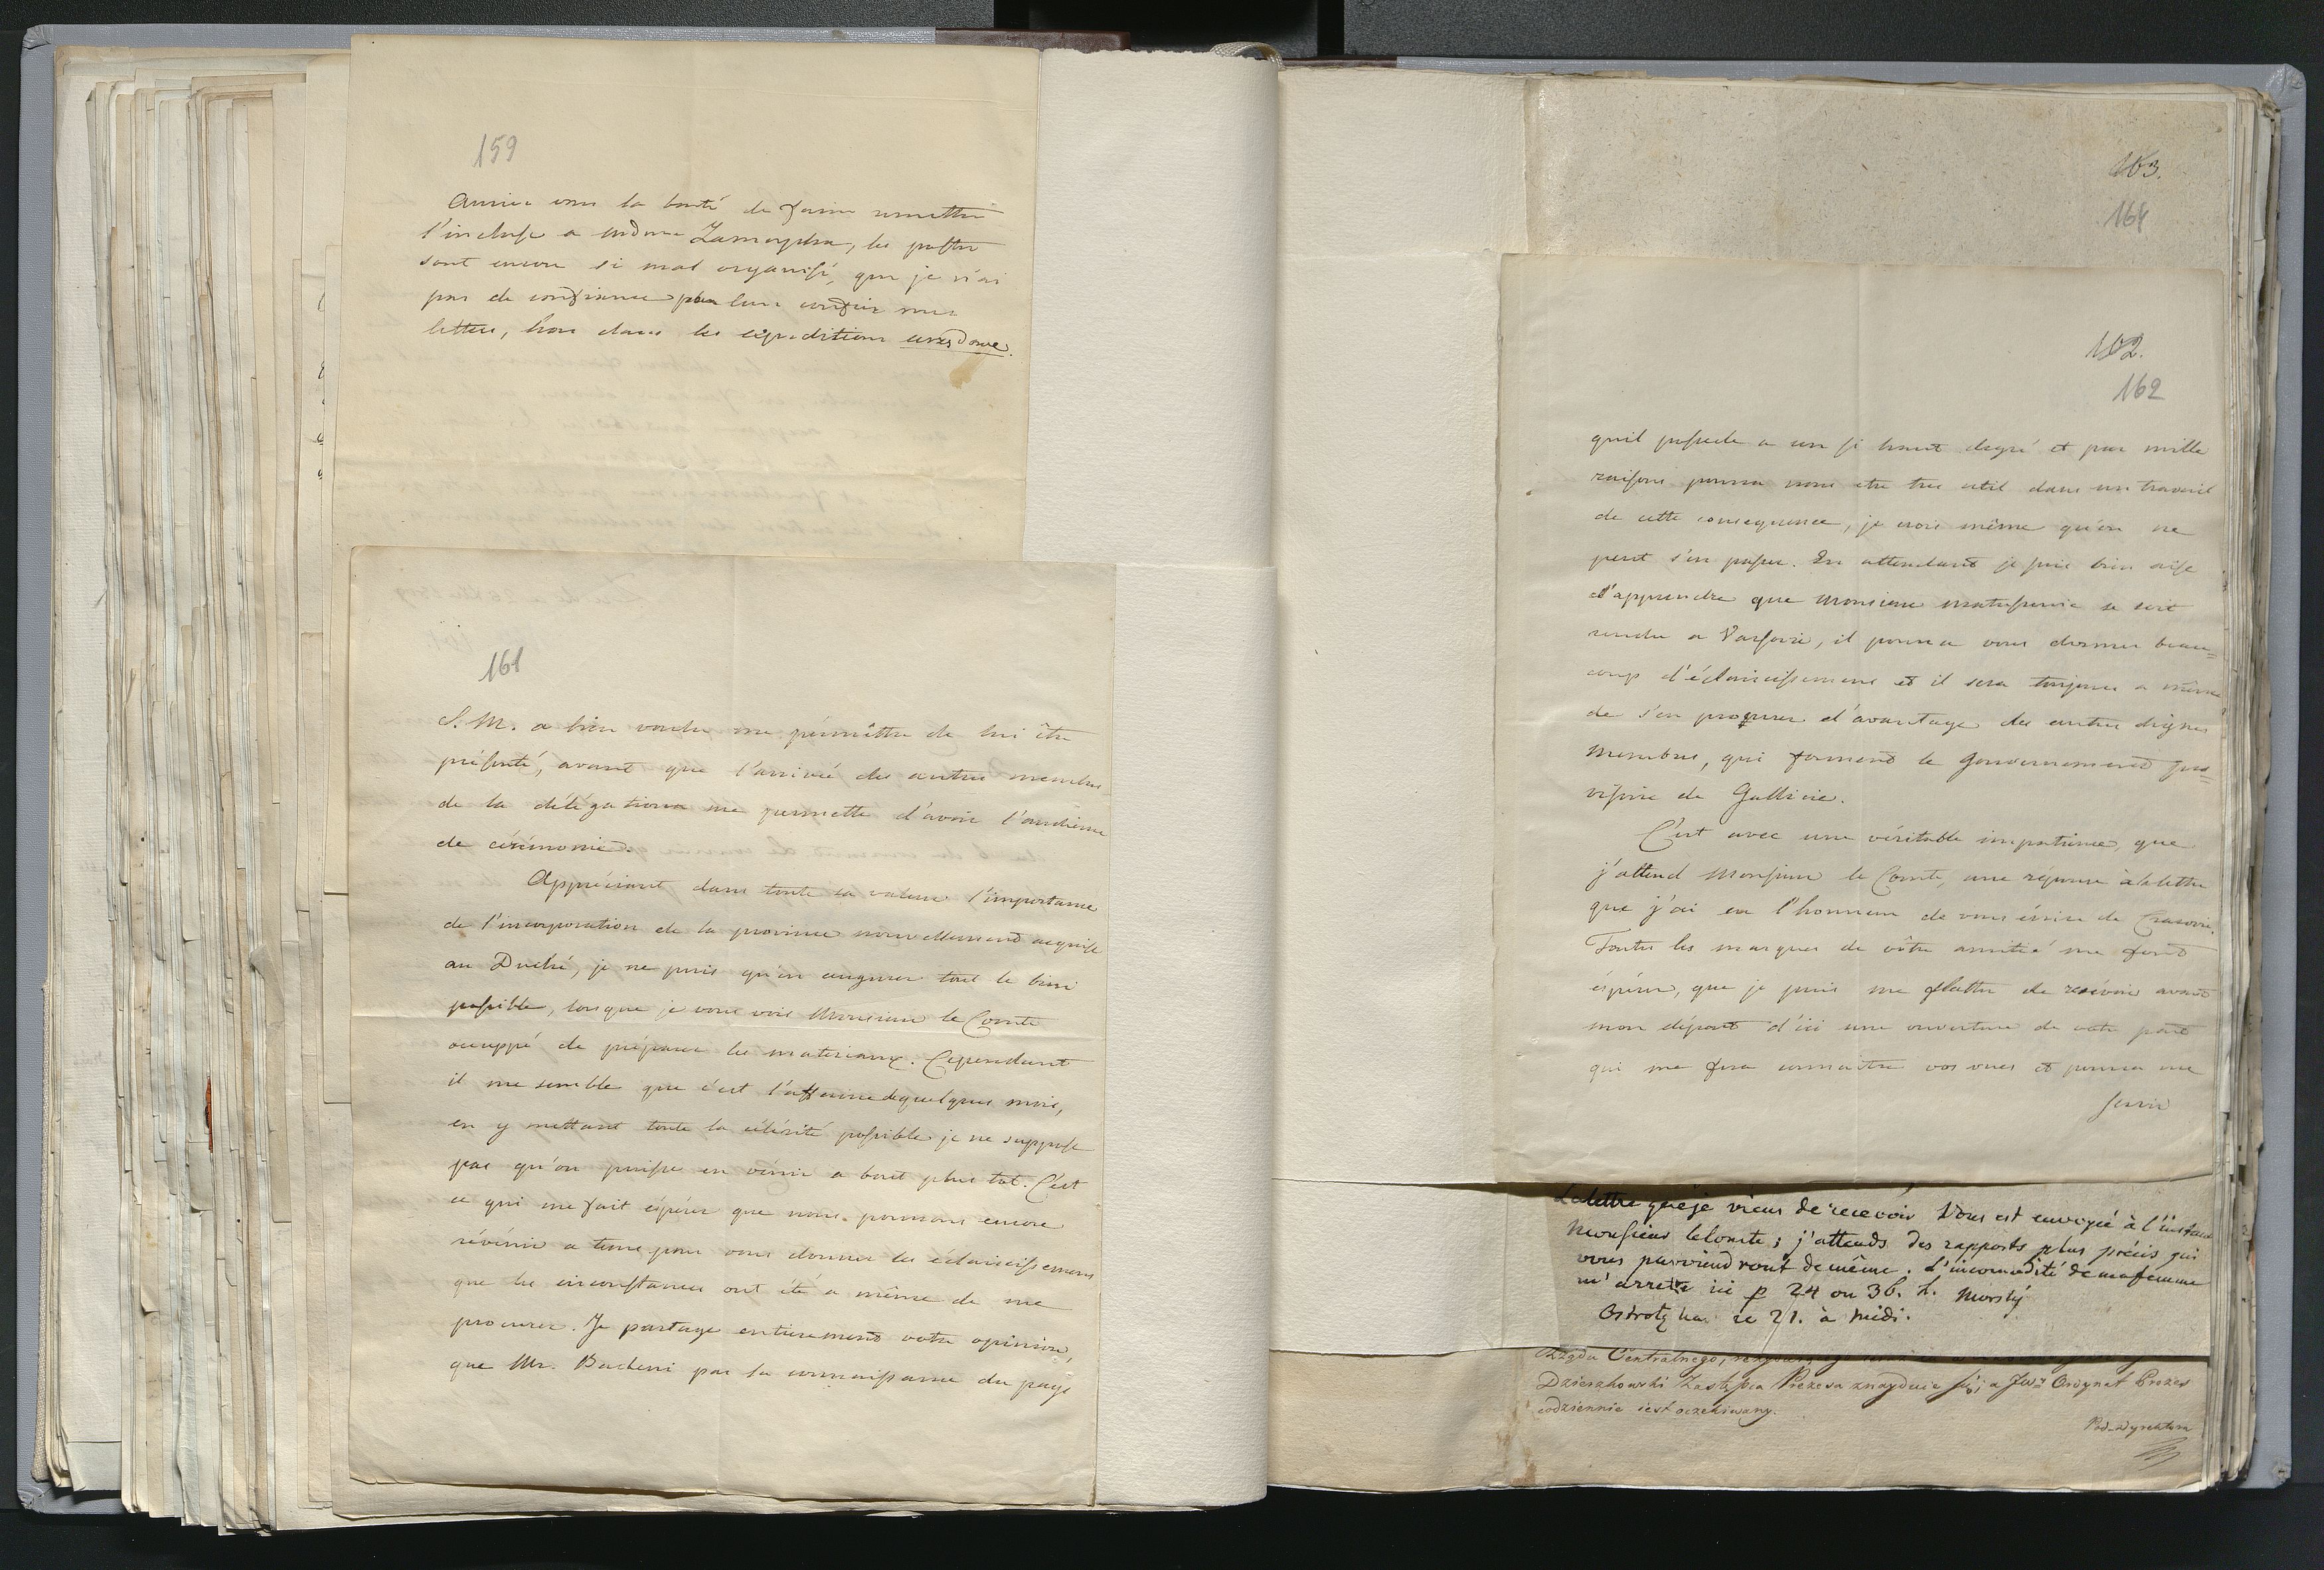 159
Auriez vous la bonté de faire remettre
l'incluse a Mdme Zamoyska, les postes
sont encore si mal organisé, que je n'ai
pas de confiance pour leur confier mes
lettres, hors dans les expeditions
161
S. M. a bien voulu me pérmèttre de lui être
présenté, avant que l'arrivée des autres membres
de la délégation me permette d'avoir l'audience
de cérémonie.
Appréciant dans toute sa valeur l'importance
de l'incorporation de la province nouvellement acquise
au Duché, je ne puis qu'en augurer tout le bien
possible, lorsque je vous vois Monsieur le Comte
occuppé de préparer les materiaux. Cependant
il me semble que c'est l'affaire de quelques mois,
en y mettant toute la célérité possible je ne suppose
pas qu'on puisse en vénir a bout plus tot. C'est
ce qui me fait éspérer que nous pourrons encore
révénir a tems pour vous donner les éclaircissemens
que les circonstances ont été a même de me
procurer. Je partage entierement votre opinion,
que Mr. Badeni par sa connaissance du pays
163.
164
162.
162
quil possede a un si haut degré et par mille
raisons pourra nous etre tres util dans un travail
de cette consequence, je crois même qu'on ne
peut s'en passer. En attendant je suis bien aise
d'apprendre que Monsieur Matusewic se soit
rendu a Varsovie, il pourra vous donner beau=
coup d'éclaircissemens et il sera toujours a même
de s'en procurer d'avantage des autres dignes
Membres, qui forment le Gouvernement pro=
visoire de Gallicie.
C'est avec une véritable impatience, que
j'attend Monsieur le Comte, une réponse à la lettre
que j'ai eu l'honneur de vous écrire de Cracovie.
Toutes les marques de vôtre amitié me font
éspérer, que je puis me flatter de recevoir avant
mon départ d'ici une ouverture de votre part
qui me fera connaitre vos vues et pourra me
servir
La lettre que je viens de recevoir Vous est envoyée à l'instant
Monsieur le Comte; j'attends des rapports plus précis qui
vous parviendront de même. L'incomodité de ma femme
m'arrete ici p 24 ou 36. h. Morsky
ce 21. à Midi.
Rządu Centralnego,
Dzierzkowski Zastępca Prezesa znayduie się; a Prezes
codziennie iest oczekiwany.
Pod-Dyrektora